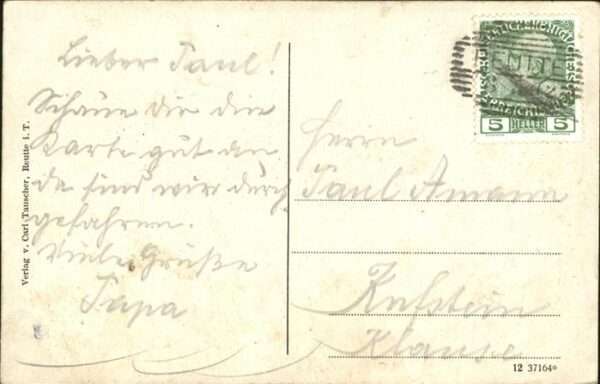 Lieber Paul!
Schaue dir die
Karte gut an
da sind wir durch
gefahren.
Viele Grüße
Papa
Verlag v. Carl Tauscher, Reutte i. T.
REUTTE
5 HELLER 5
Herrn
Paul Amann
Kufstein
Klause
12 37164*